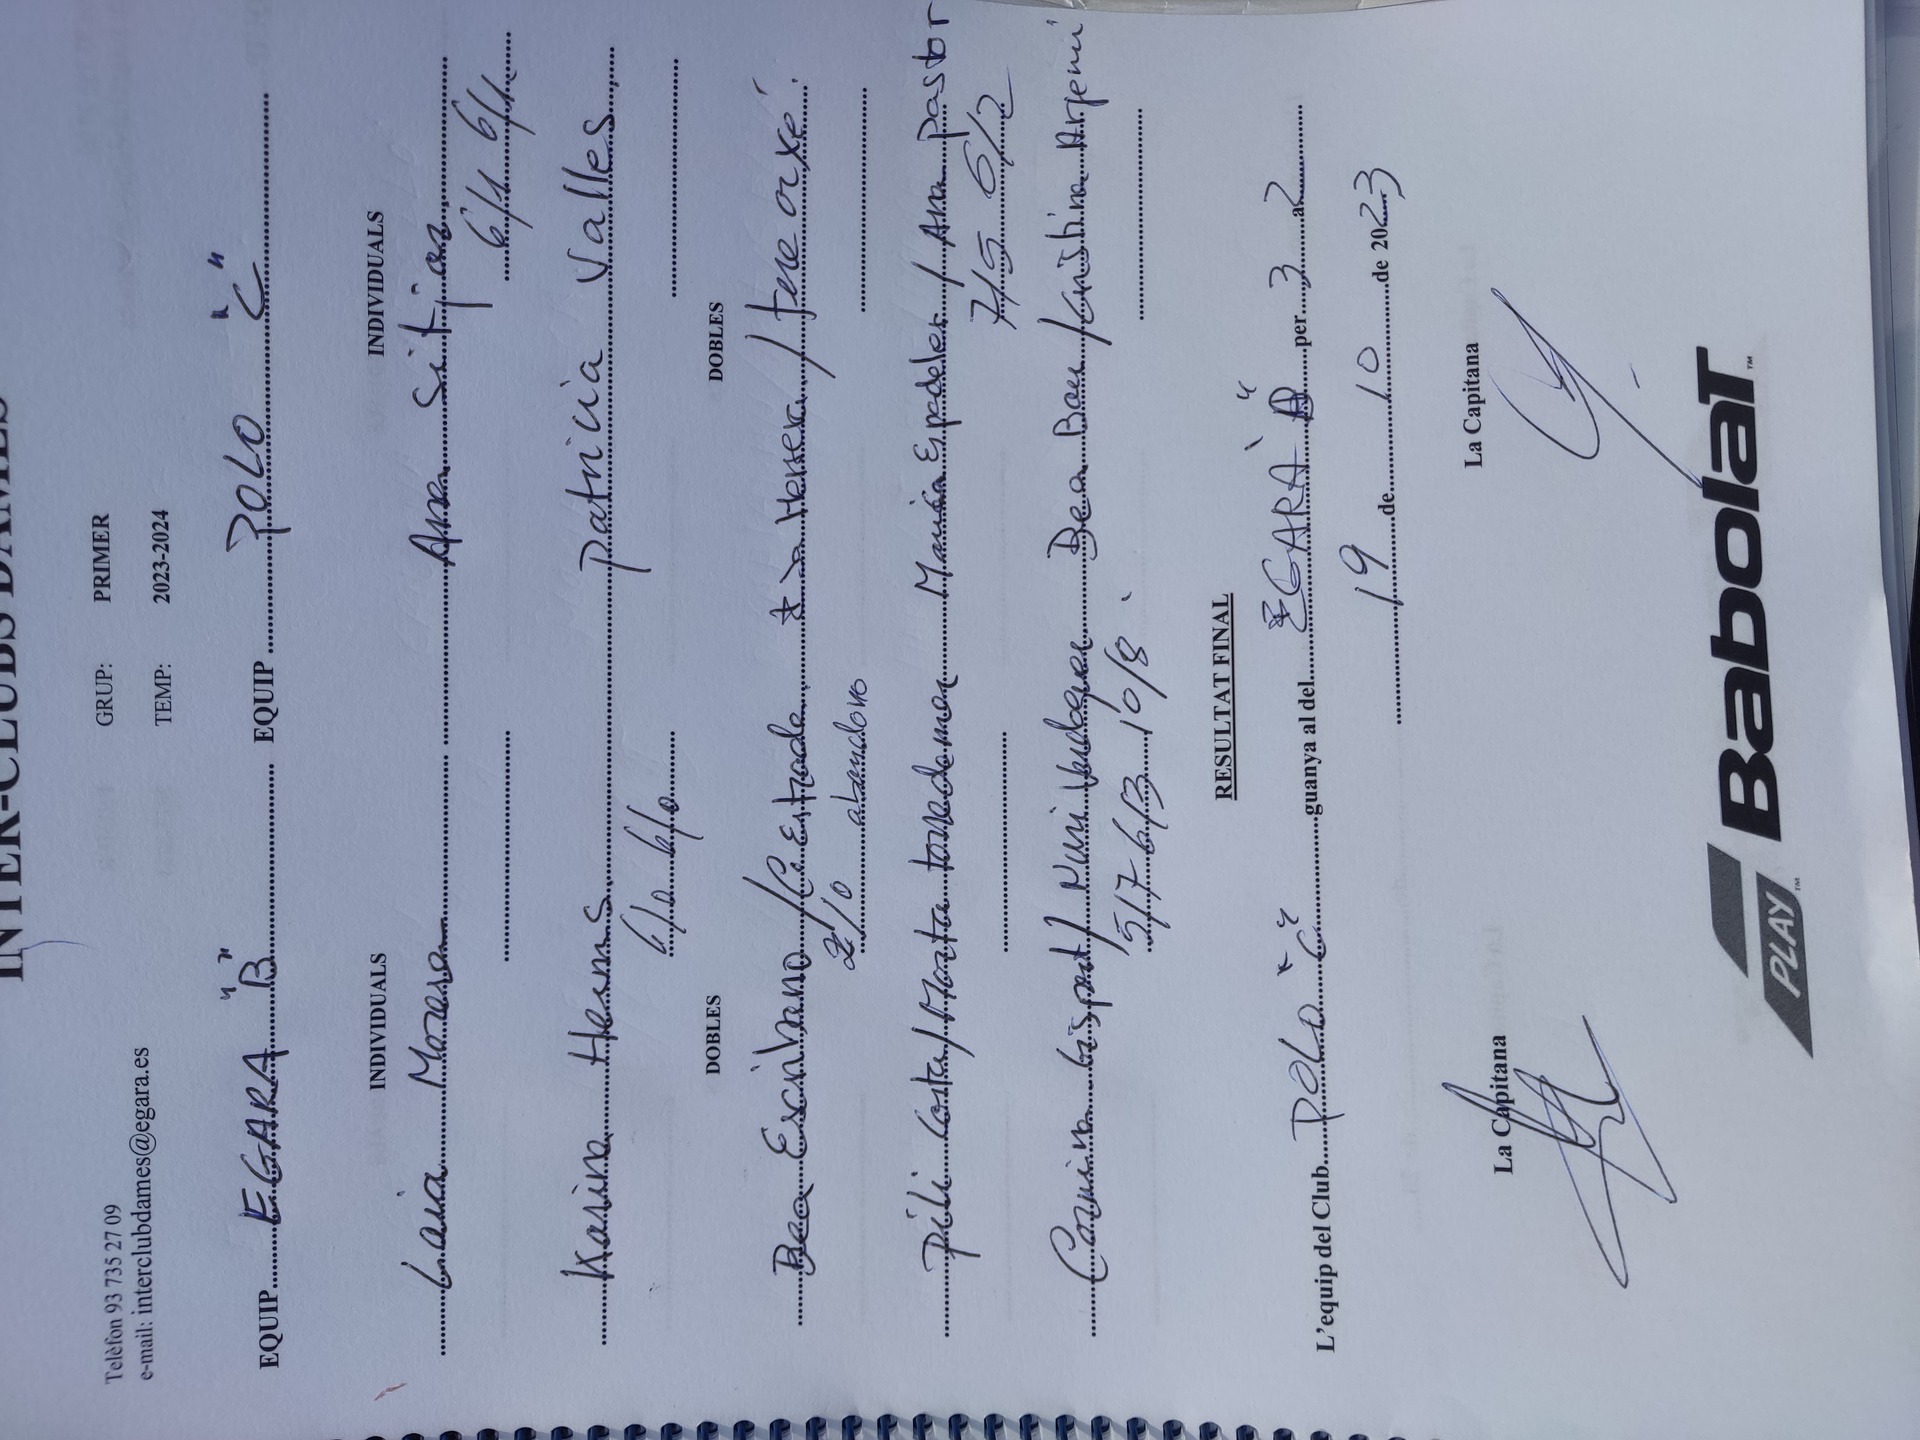 INTER-CLUBS DAMES
Telèfon 93 735 27 09
e-mail: interclubdames@egara.es
GRUP: PRIMER
TEMP: 2023-2024
EQUIP EGARA "B" EQUIP POLO "C"
INDIVIDUALS INDIVIDUALS
Laia Morera Ana Sitjar
6/1 6/1
Karina Heims Patricia Valles
6/0 6/0
DOBLES DOBLES
Bea Escribano / Estrada Herrera / Tere
2/0 abandono
Pili Costa / Marta Torredemer Maria Espadeler / Ana Pastor
7/5 6/2
Carmina Gispert / Muri Verdaguer Bea Baer / Cristina Argemi
5/7 6/3 10/8
RESULTAT FINAL
L'equip del Club POLO "C" guanya al del EGARA "B" per 3 a 2
19 de 10 de 2023
La Capitana La Capitana
PLAY™ BabolaT™